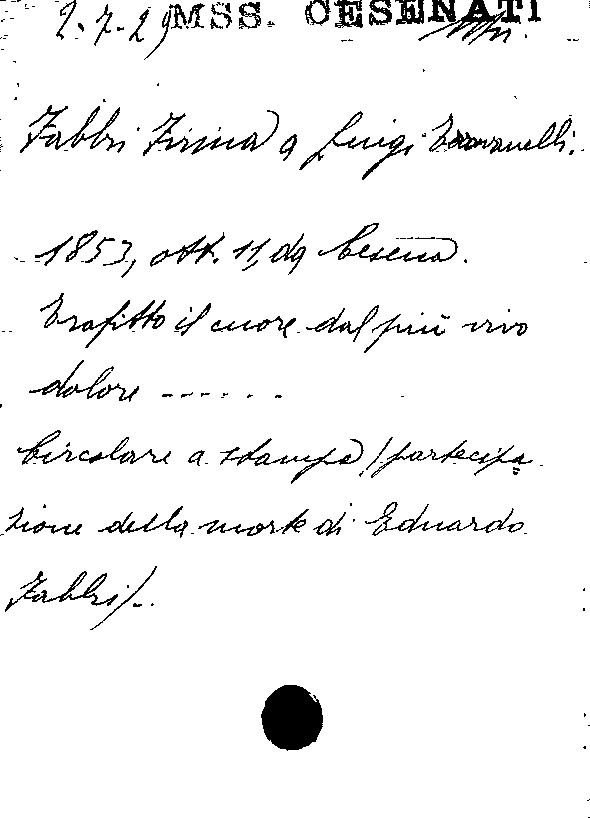 2-7-29 MSS. CESENATI
Fabbri Firma a Luigi
1853, ott. 11, da Cesena.
Trafitto il cuore dal più vivo
dolore ------
Circolare a stampa /partecipa
zione della morte di Eduardo
Fabbri/-.